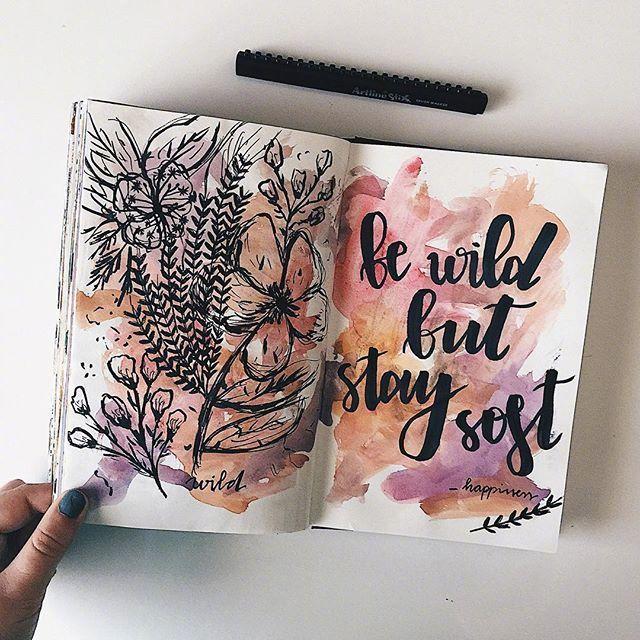 Artline Stix BRUSH MARKER
wild
be wild
but
stay
soft
- happiness